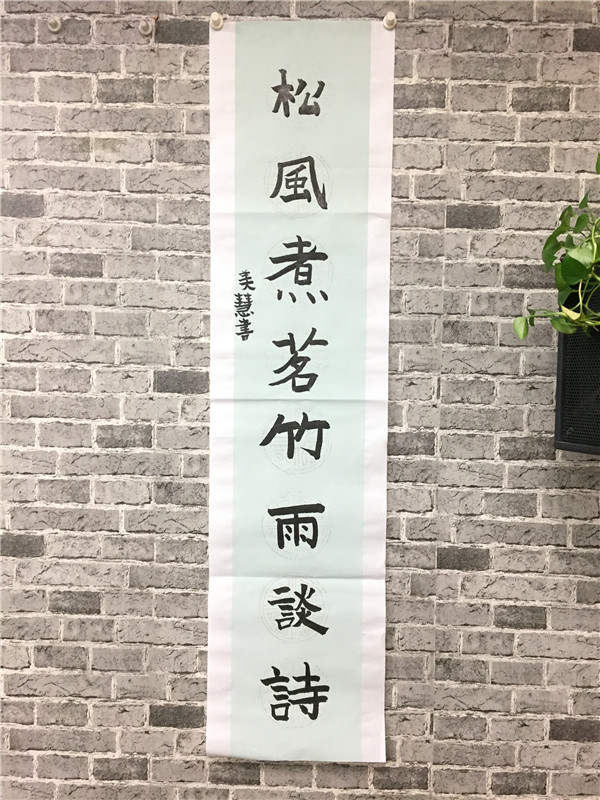 松風煮茗竹雨談詩
美慧書